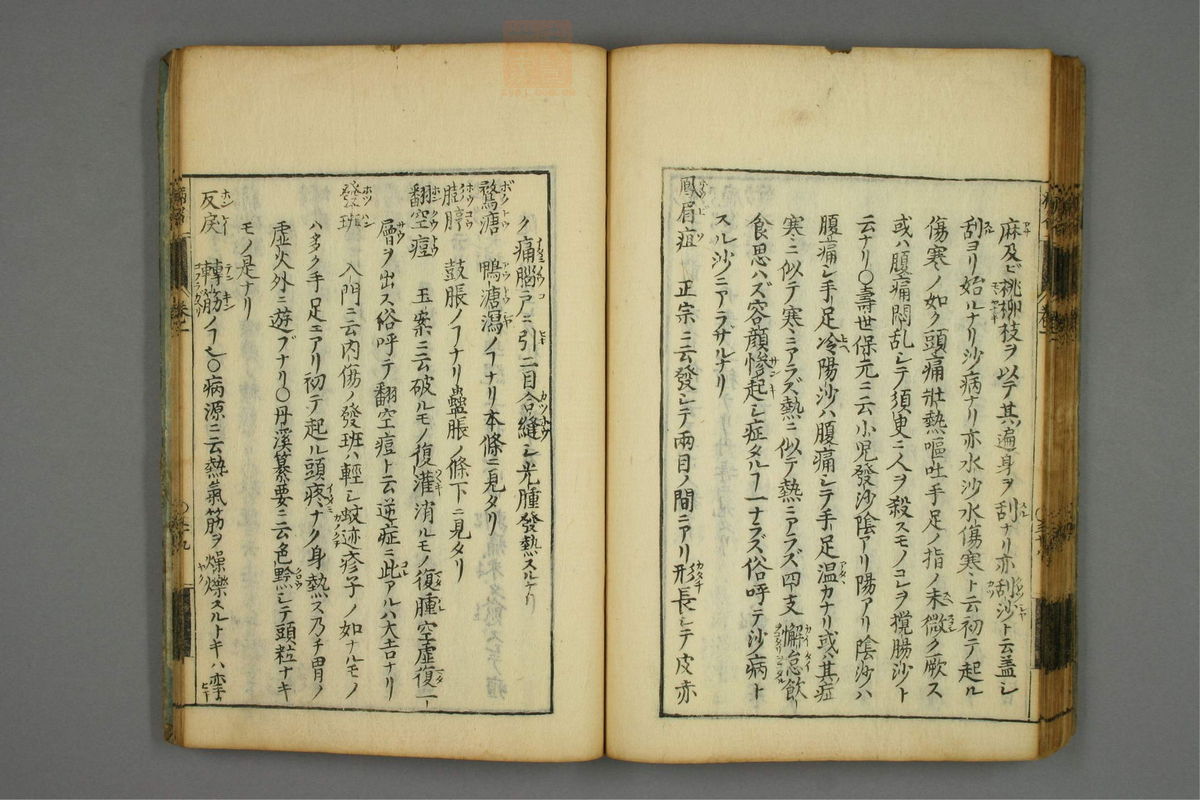 麻及ビ桃柳枝ヲ以テ其遍身ヲ刮ナリ亦刮沙ト云蓋シ
刮ヨリ始ルナリ沙病ナリ亦水沙水傷寒ト云初テ起ル
傷寒ノ如ク頭痛壯熱嘔吐手足ノ指ノ末微ク厥ス
或ハ腹痛悶乱シテ須臾ニ人ヲ殺スモノコレヲ攪腸沙ト
云ナリ〇壽世保元ニ云小児發沙陰アリ陽アリ陰沙ハ
腹痛シ手足冷陽沙ハ腹痛シテ手足温カナリ或其症
寒ニ似テ寒ニアラズ熱ニ似テ熱ニアラズ四支懈怠飲
食思ハズ容顔惨起シ症タル一ナラズ俗呼テ沙病ト
スル沙ニアラザルナリ
鳳眉疽 正宗ニ云發シテ兩目ノ間ニアリ形長シテ皮赤
ク痛腦戸ニ引二目合縫シ光腫發熱スルナリ
鶩溏 鴨溏瀉ノフナリ本條ニ見タリ
脝 鼓脹ノフナリ蠱脹ノ條下ニ見タリ
翻空痘 玉案ニ云破ルモノ復灌消ルモノ復腫空虚復一
層ヲ出ス俗呼テ翻空痘ト云逆症ニ此アルハ大吉ナリ
發班 入門ニ云内傷ノ發班ハ輕シ蚊迹疹子ノ如ナルモノ
ハ多ク手足ニアリ初テ起ル頭疼ナク身熱ス乃チ胃ノ
虚火外ニ遊ブナリ〇丹溪纂要ニ云色黙シテ頭粒ナキ
モノ是ナリ
反戻 轉筋ノフ〇病源ニ云熱氣筋ヲ燥爍スルトキハ攣